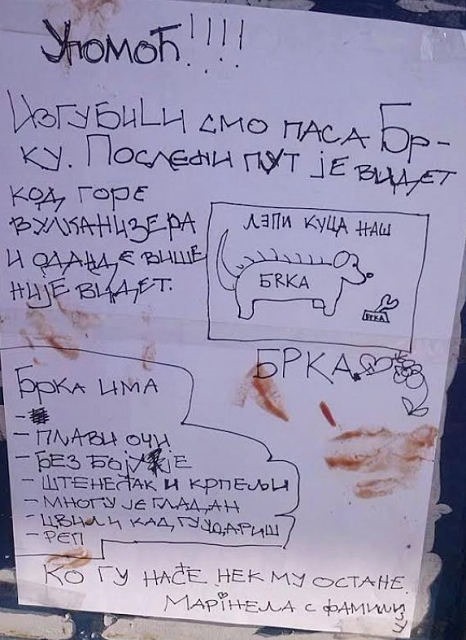 Упомоћ!!!!
Изгубили смо паса Бр-
ку. Последњи пут је видет
код горе
вулканизера
и оданде више
није видет.
Лэпи куца наш
БRKA
БРКА
БРКА.
Брка има
- плави очи
- без боју је
- штенећак и крпељи
- многу је гладан
- цвили кад гу удариш
- реп
Ко гу наће нек му остане.
Марiнела с фамилију